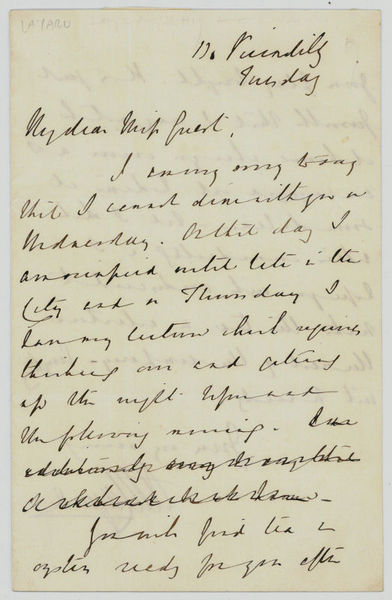 LAYARD
130 Piccadilly
Tuesday
My dear Miss Guest,
I am very sorry to say
that I cannot dine with you on
Wednesday. On that day I
am occupied until late in the
City and on Thursday I
have my lecture which requires
thinking over and getting
up the night before and
the following morning. I am
You will find tea &
oysters ready for you after